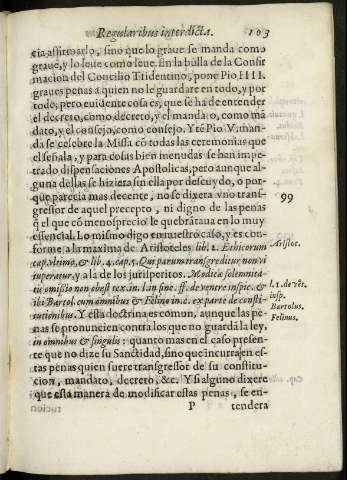 Regularibus interdicta. 103
cia assirmarlo, sino que lo graue se manda como
graue, y lo leue como leue. En la bulla de la Confir
macion del Concilio Tridentino, pone Pio IIII.
graues penas a quien no le guardare en todo, y por
todo, pero euidente cosa es, que se ha de entender
el decreto, como decreto, y el mandato, como mã
dato, y el consejo, como consejo. Y tẽ Pio V. man-
da se celebre la Missa cõ todas las ceremonias que
el señala, y para cosas bien menudas se han impe
trado dispensaciones Apostolicas, pero aunque al-
guna dellas se hiziera sin ella por descuydo, o por-
que parecia mas decente, no se dixera vno trans-
gressor de aquel precepto, ni digno de las penas
q̃ el que cõ menosprecio le quebrãtaua en lo muy
essencial. Lo mismo digo en nuestro caso, y es con-
forme a la maxima de Aristoteles lib. 2. Ethicorum
cap. vltimo, & lib. 4. cap. 5. Qui parum transgreditur non vi
tuperatur, y a la de los jurisperitos. Modicæ solemnita-
tis omissio non obest tex. in l. an sine. ff. de venere inspic. &
ibi Bartol. cum omnibus & Felino in c. ex parte de consti-
tutionibus. Y esta doctrina es comun, aunque las pe-
nas se pronuncien contra los que no guardã la ley,
in omnibus & singulis: quanto mas en el caso presen-
te que no dize su Sanctidad, sino que incurrajen es-
tas penas quien fuere transgressor de su constitu-
cion, mandato, decreto, &c. Y si alguno dixere
que esta manera de modificar estas penas, se en-
P tendera
99
Aristot.
l. 1. de vẽt.
insp.
Bartolus.
Felinus.